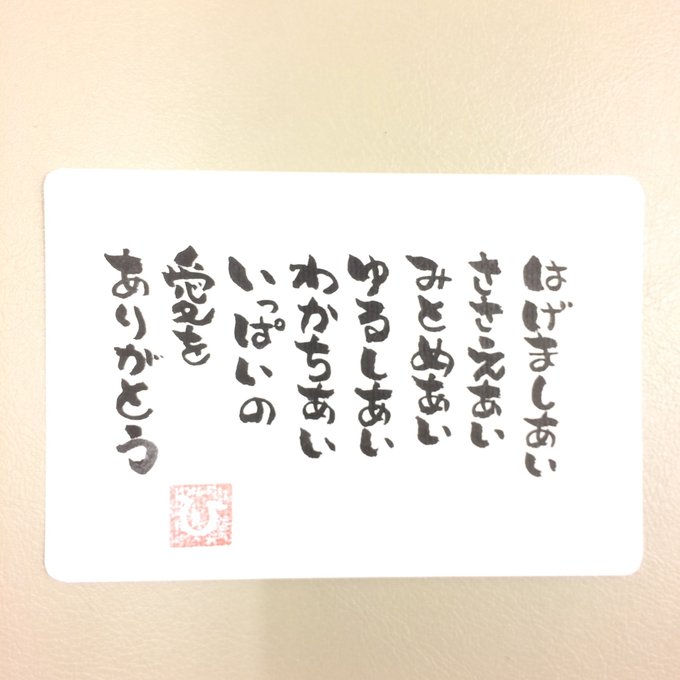 はげましあい
ささえあい
みとめあい
ゆるしあい
わかちあい
いっぱいの
愛を
ありがとう
ひ